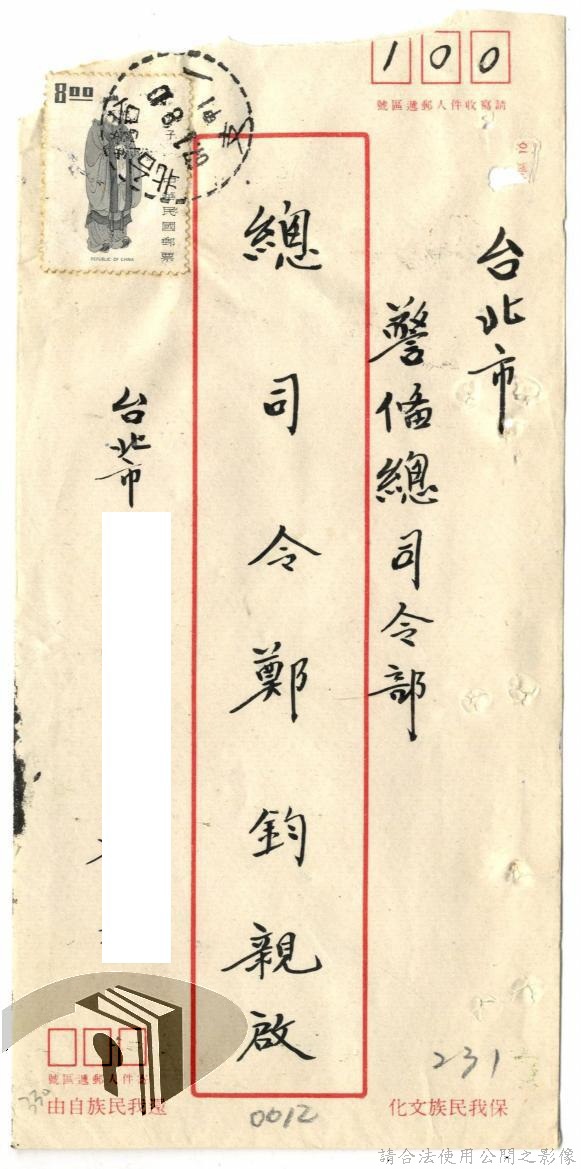 100
請寫收件人郵遞區號
台北市
警備總司令部
總司令鄭鈞親啟
800
中華民國郵票
REPUBLIC OF CHINA
台北市
寄件人郵遞區號
還我民族自由
保我民族文化
231
0012
330
請合法使用公開之影像